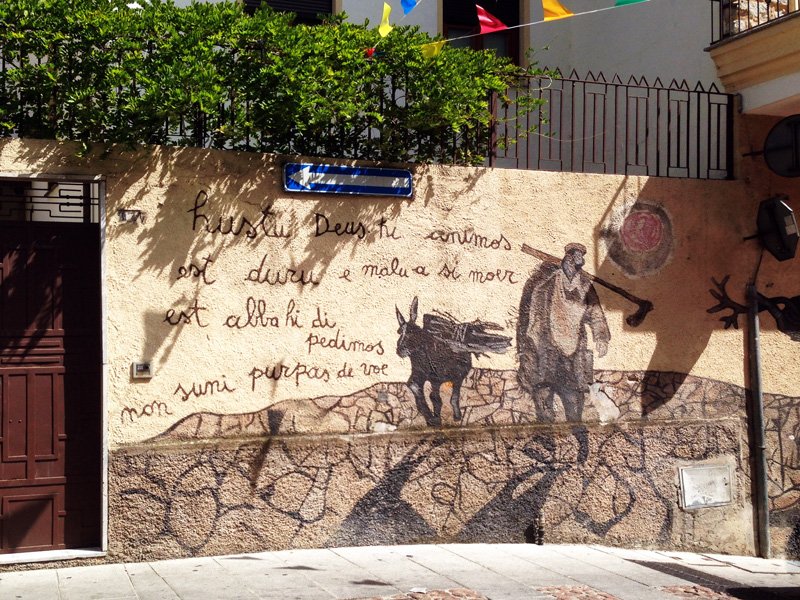 hustu Deus hi animos
est duru e malu a si moer
est abba hi di
pedimos
non suni purpas de voe